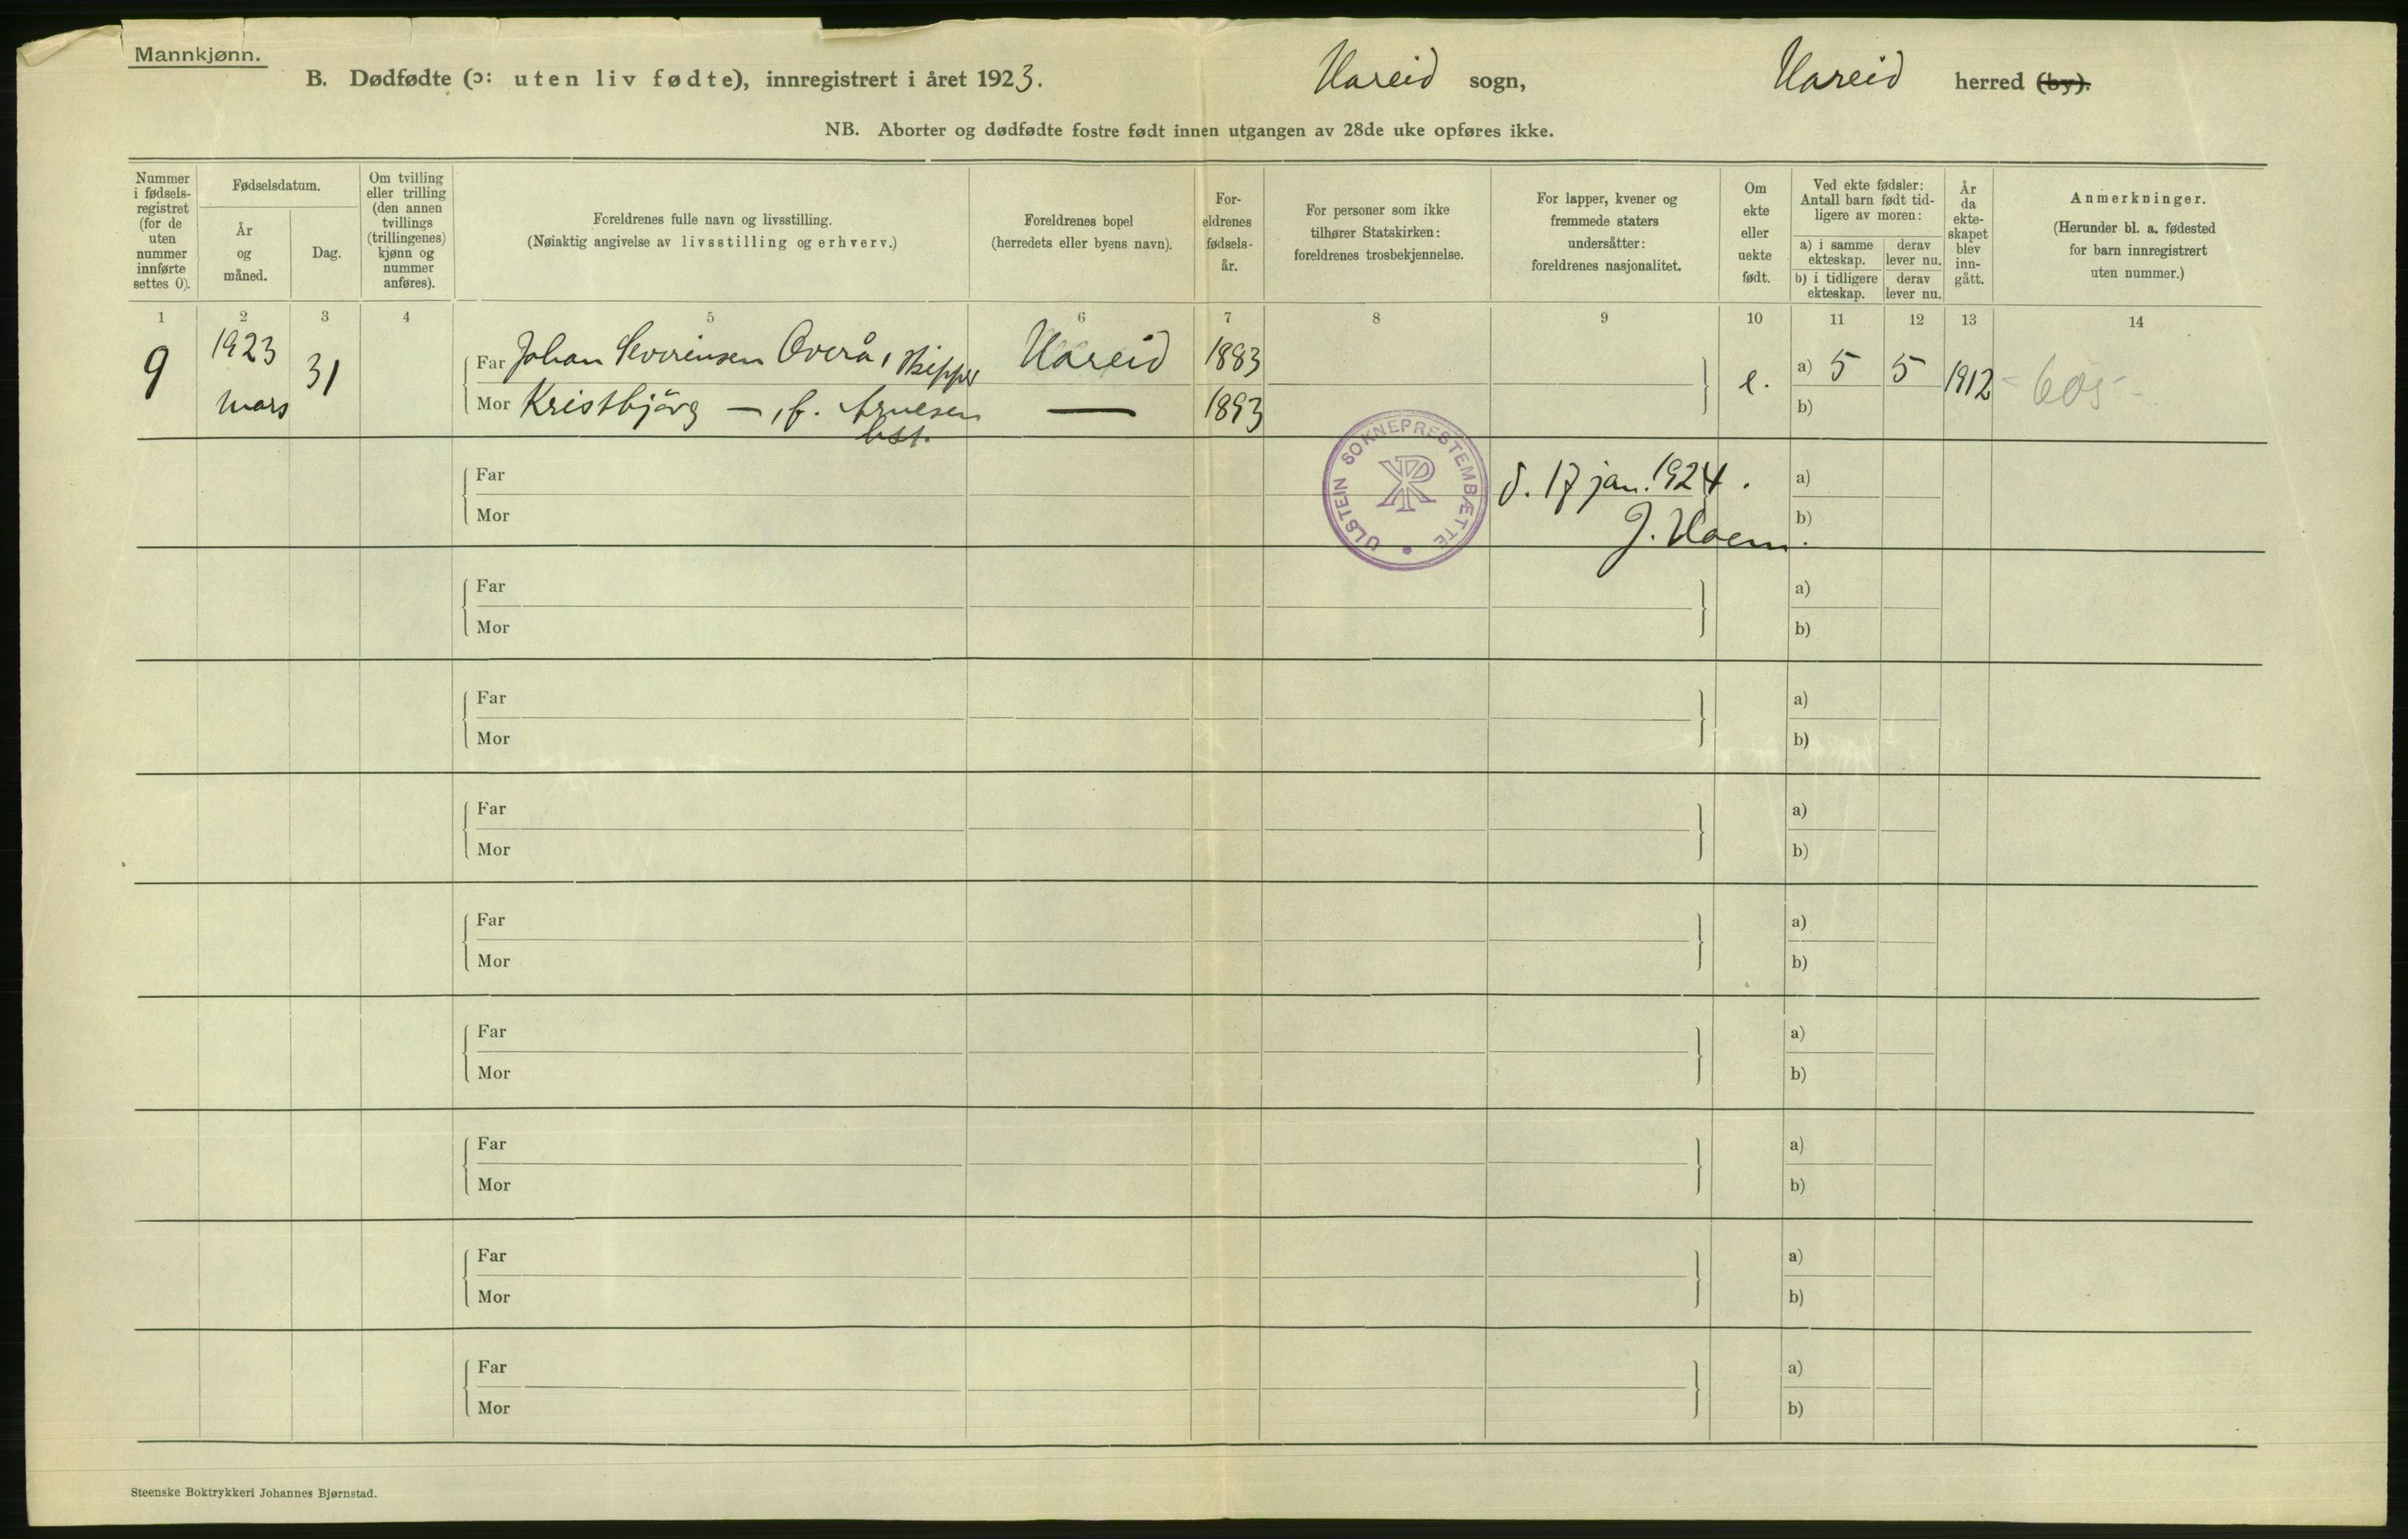 Mannkjønn.
B. Dødfødte (ɔ: uten liv fødte), innregistrert i året 1923. Hareid sogn, Hareid herred (by).
NB. Aborter og dødfødte fostre født innen utgangen av 28de uke opføres ikke.
Nummer i fødsels- registret (for de uten nummer innførte settes 0).
Fødselsdatum.
År og måned.
Dag.
Om tvilling eller trilling (den annen tvillings (trillingenes) kjønn og nummer anføres).
Foreldrenes fulle navn og livsstilling.
(Nøiaktig angivelse av livsstilling og erhverv.)
Foreldrenes bopel
(herredets eller byens navn).
For- eldrenes fødsels- år.
For personer som ikke tilhører Statskirken: foreldrenes trosbekjennelse.
For lapper, kvener og fremmede staters undersåtter: foreldrenes nasjonalitet.
Om ekte eller uekte født.
Ved ekte fødsler: Antall barn født tid- ligere av moren:
a) i samme ekteskap. derav lever nu.
b) i tidligere ekteskap. derav lever nu.
År da ekte- skapet blev inn- gått.
Anmerkninger.
(Herunder bl. a. fødested for barn innregistrert uten nummer.)
1 2 3 4 5 6 7 8 9 10 11 12 13 14
9 1923 mars 31
Far Johan Severinsen Overå, skipper Hareid 1883
e. a) 5 5 1912 - 605 -
Mor Kristbjörg —, f. Arnesen — 1893
b)
hst.
ULSTEIN SOKNEPRESTEMBÆTTE
d. 17 jan. 1924.
J. Hoem.
Far a)
Mor b)
Far a)
Mor b)
Far a)
Mor b)
Far a)
Mor b)
Far a)
Mor b)
Far a)
Mor b)
Far a)
Mor b)
Far a)
Mor b)
Far a)
Mor b)
Steenske Boktrykkeri Johannes Bjørnstad.